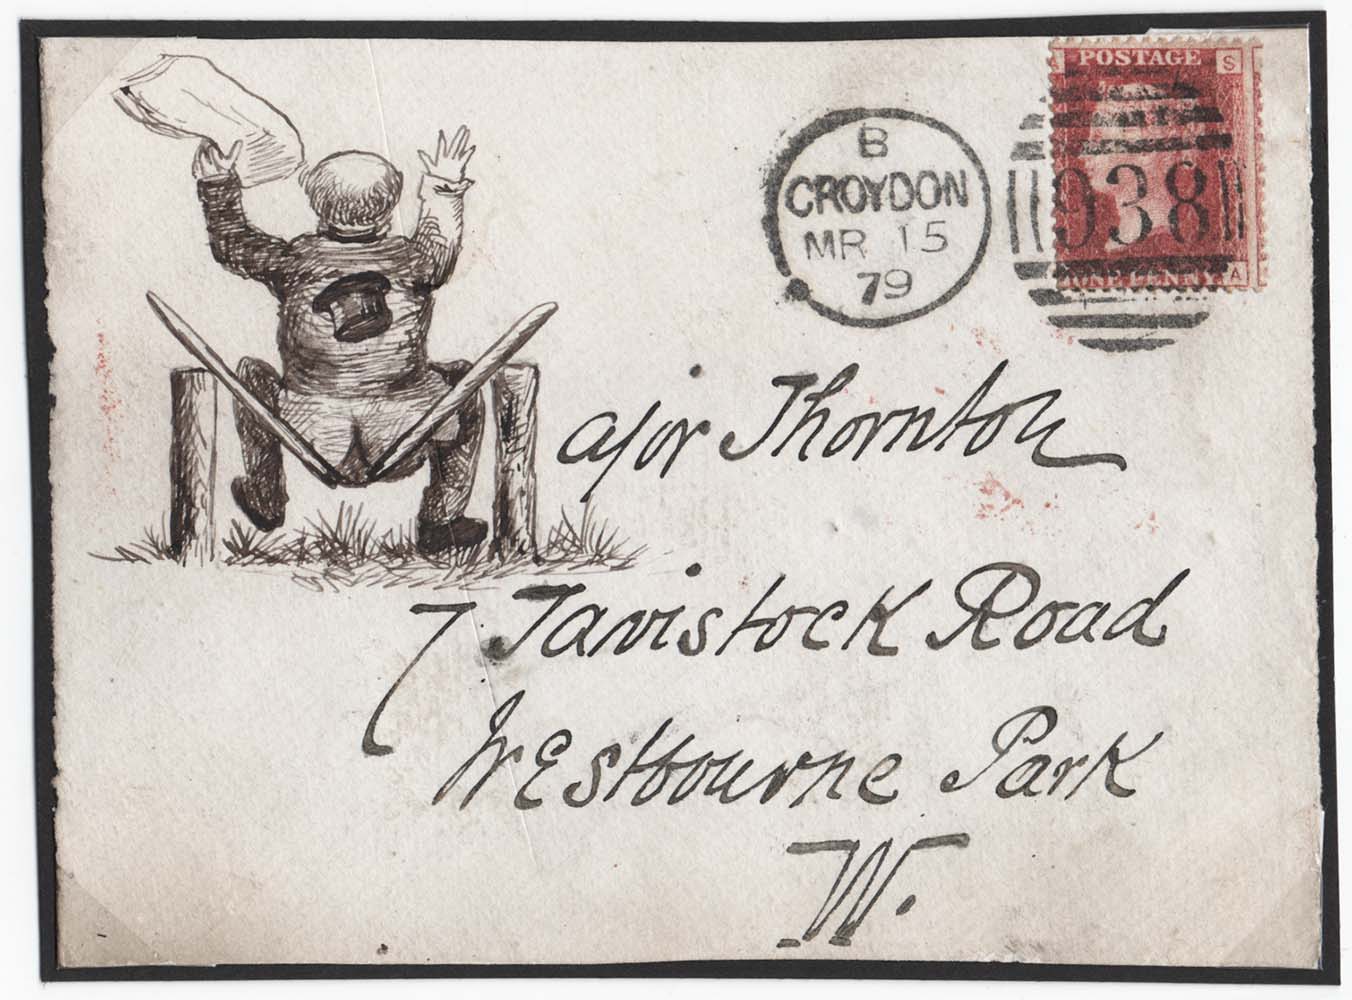 POSTAGE
S
B
CROYDON
MR 15
79
938
ONE PENNY
A
ajor Thornton
7 Tavistock Road
Westbourne Park
W.